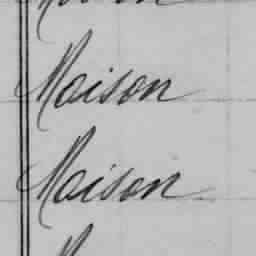 Maison
Maison